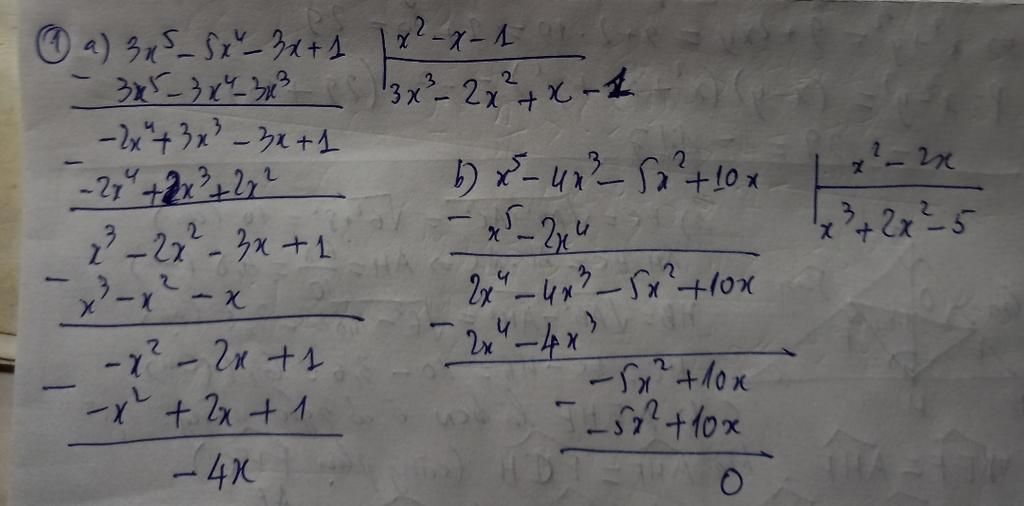 ① a) 3x⁵ - 5x⁴ - 3x + 1 | x² - x - 1
- 3x⁵ - 3x⁴ - 3x³ | 3x³ - 2x² + x - 1
-2x⁴ + 3x³ - 3x + 1
- -2x⁴ + 2x³ + 2x²
x³ - 2x² - 3x + 1
- x³ - x² - x
-x² - 2x + 1
- -x² + 2x + 1
-4x
b) x⁵ - 4x³ - 5x² + 10x | x² - 2x
- x⁵ - 2x⁴ | x³ + 2x² - 5
2x⁴ - 4x³ - 5x² + 10x
- 2x⁴ - 4x³
-5x² + 10x
- -5x² + 10x
0